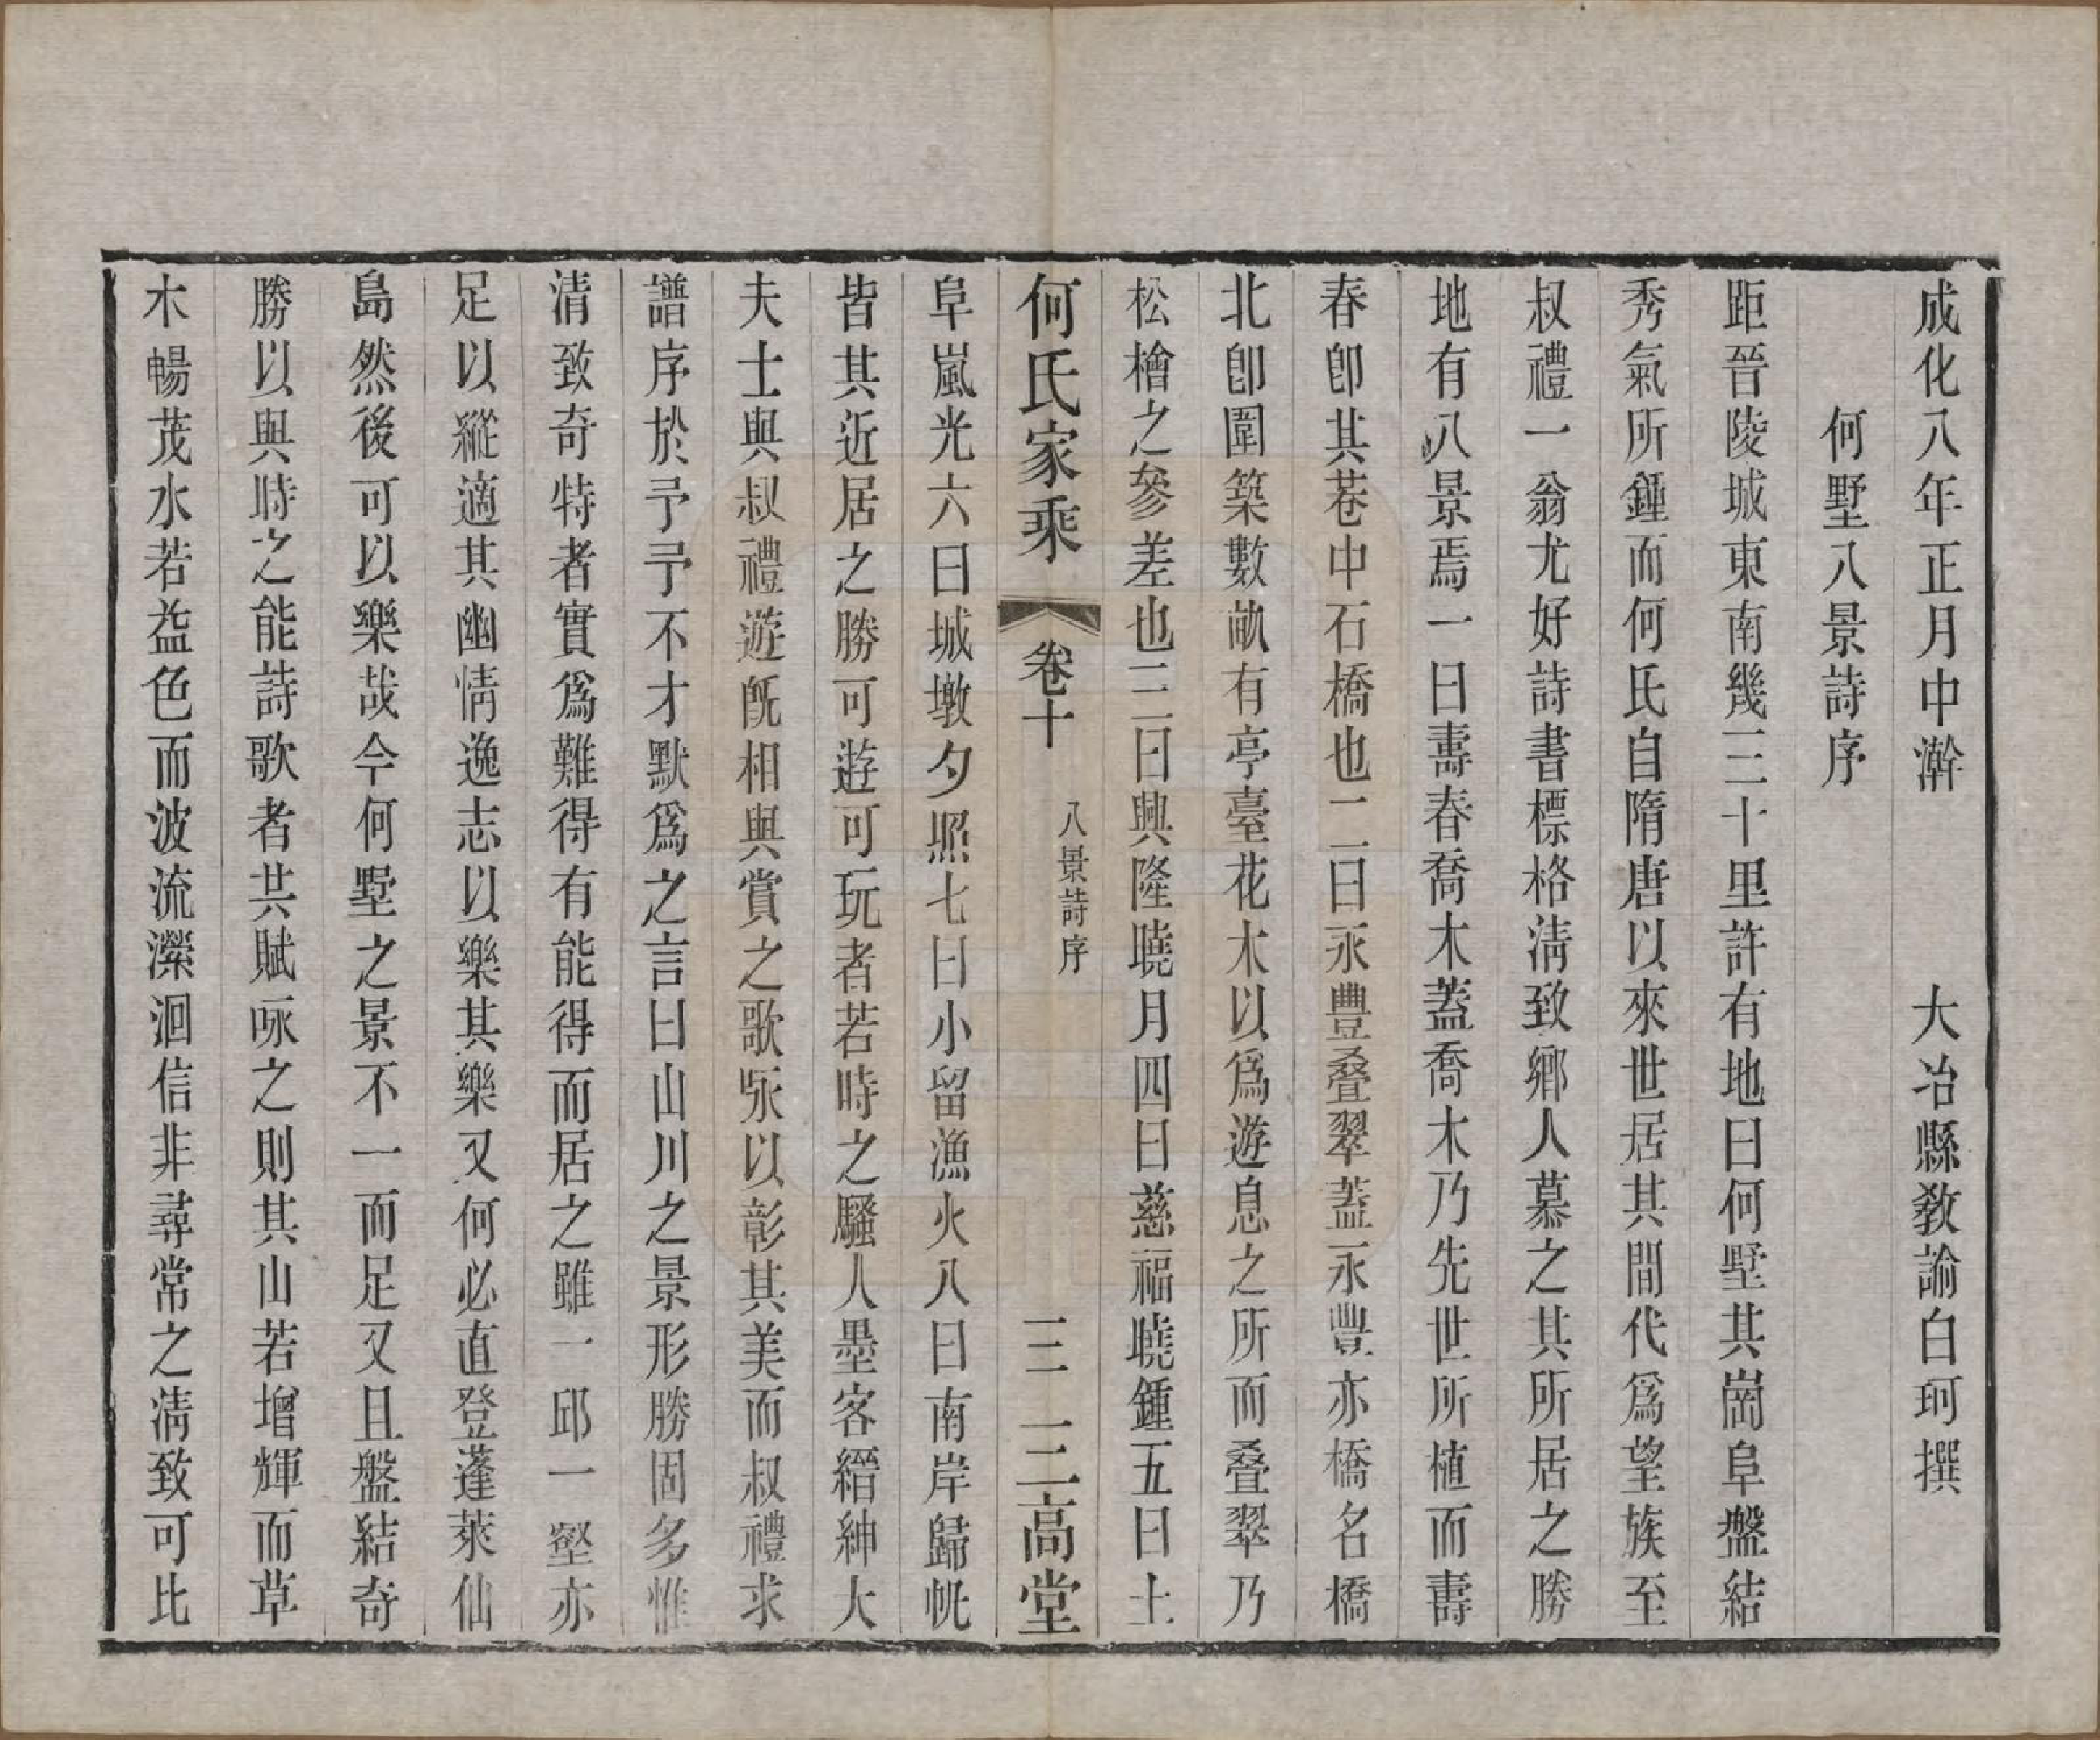 成化八年正月中澣　大冶縣敎諭白珂撰
何墅八景詩序
距晉陵城東南幾三十里許有地曰何墅其崗阜盤結
秀氣所鍾而何氏自隋唐以來世居其間代爲望族至
叔禮一翁尤好詩書標格清致鄉人慕之其所居之勝
地有八景焉一曰壽春喬木蓋喬木乃先世所植而壽
春卽其巷中石橋也二曰永豐叠翠蓋永豐亦橋名橋
北卽圍築數畝有亭臺花木以爲遊息之所而叠翠乃
松檜之參差也三曰興隆曉月四曰慈福曉鍾五曰土
何氏家乘　卷十　八景詩序　三　三高堂
阜嵐光六曰城墩夕照七曰小留漁火八曰南岸歸帆
皆其近居之勝可遊可玩者若時之騷人墨客縉紳大
夫士與叔禮遊旣相與賞之歌咏以彰其美而叔禮求
譜序於予予不才默爲之言曰山川之景形勝固多惟
清致奇特者實爲難得有能得而居之雖一邱一壑亦
足以縱適其幽情逸志以樂其樂又何必直登蓬萊仙
島然後可以樂哉今何墅之景不一而足又且盤結奇
勝以與時之能詩歌者共賦咏之則其山若增輝而草
木暢茂水若益色而波流瀠洄信非尋常之清致可比